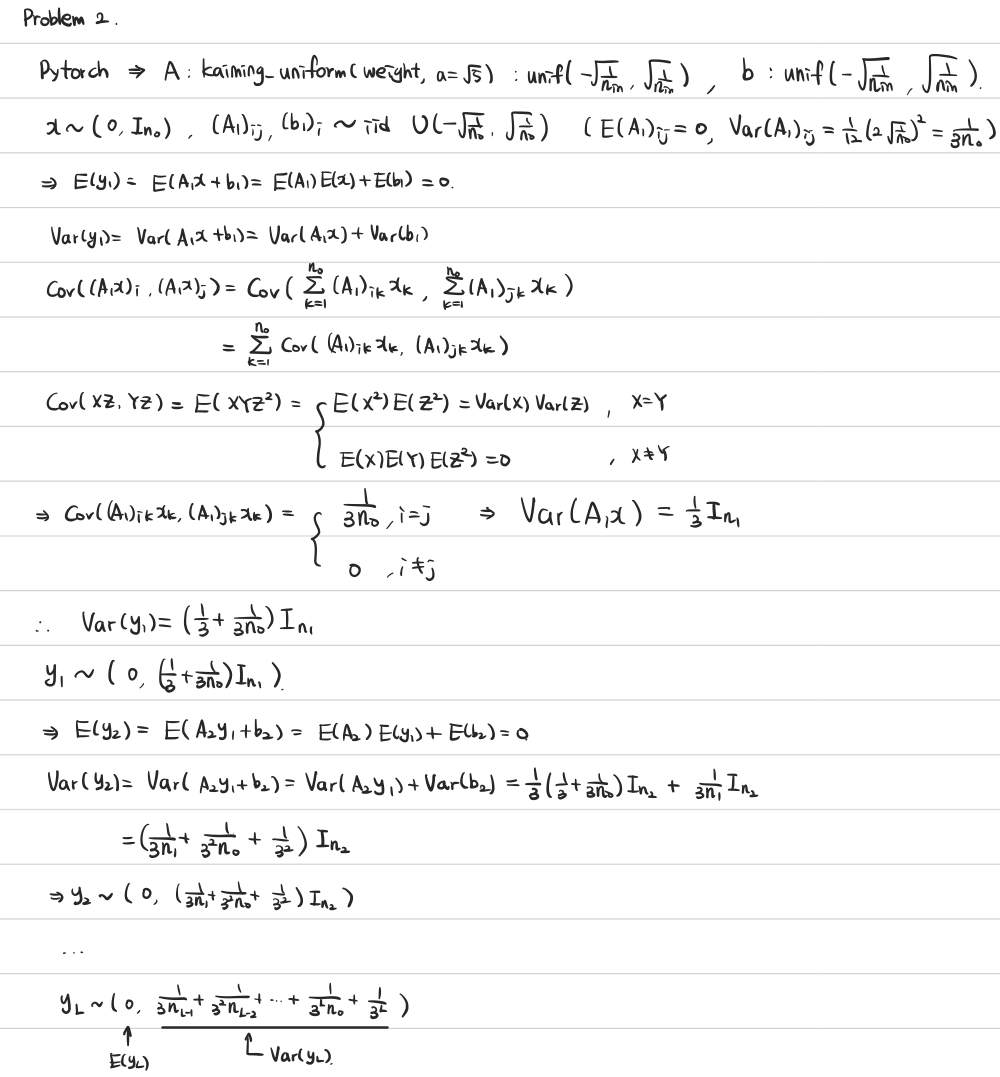 Problem 2.
Pytorch ⇒ A : kaiming_uniform( weight, a=√5 ) : unif( -√(1/n_in), √(1/n_in) ) , b : unif( -√(1/n_in), √(1/n_in) ).
x ~ (0, I_n₀) , (A₁)ᵢⱼ, (b₁)ᵢ ~ iid U( -√(1/n₀), √(1/n₀) ) ( E(A₁)ᵢⱼ = 0, Var(A₁)ᵢⱼ = 1/12 (2√(1/n₀))² = 1/(3n₀) )
⇒ E(y₁) = E(A₁x + b₁) = E(A₁)E(x) + E(b₁) = 0.
Var(y₁) = Var( A₁x + b₁) = Var(A₁x) + Var(b₁)
Cov((A₁x)ᵢ, (A₁x)ⱼ) = Cov( Σ_{k=1}^{n₀} (A₁)ᵢₖ xₖ , Σ_{k=1}^{n₀} (A₁)ⱼₖ xₖ )
= Σ_{k=1}^{n₀} Cov( (A₁)ᵢₖ xₖ, (A₁)ⱼₖ xₖ )
Cov( XZ, YZ ) = E( XYZ² ) = { E(X²) E(Z²) = Var(X) Var(Z) , X=Y
E(X)E(Y) E(Z²) = 0 , X≠Y
⇒ Cov((A₁)ᵢₖ xₖ, (A₁)ⱼₖ xₖ) = { 1/(3n₀) , i=j ⇒ Var(A₁x) = 1/3 I_n₁
0 , i≠j
∴ Var(y₁) = (1/3 + 1/(3n₀)) I_n₁
y₁ ~ ( 0, (1/3 + 1/(3n₀)) I_n₁ ).
⇒ E(y₂) = E( A₂y₁ + b₂) = E(A₂) E(y₁) + E(b₂) = 0
Var(y₂) = Var( A₂y₁ + b₂) = Var(A₂y₁) + Var(b₂) = 1/3 (1/3 + 1/(3n₀)) I_n₂ + 1/(3n₁) I_n₂
= (1/(3n₁) + 1/(3²n₀) + 1/3²) I_n₂
⇒ y₂ ~ ( 0, (1/(3n₁) + 1/(3²n₀) + 1/3²) I_n₂ )
...
y_L ~ ( 0, 1/(3n_{L-1}) + 1/(3²n_{L-2}) + ... + 1/(3^L n₀) + 1/3^L )
E(y_L) Var(y_L).